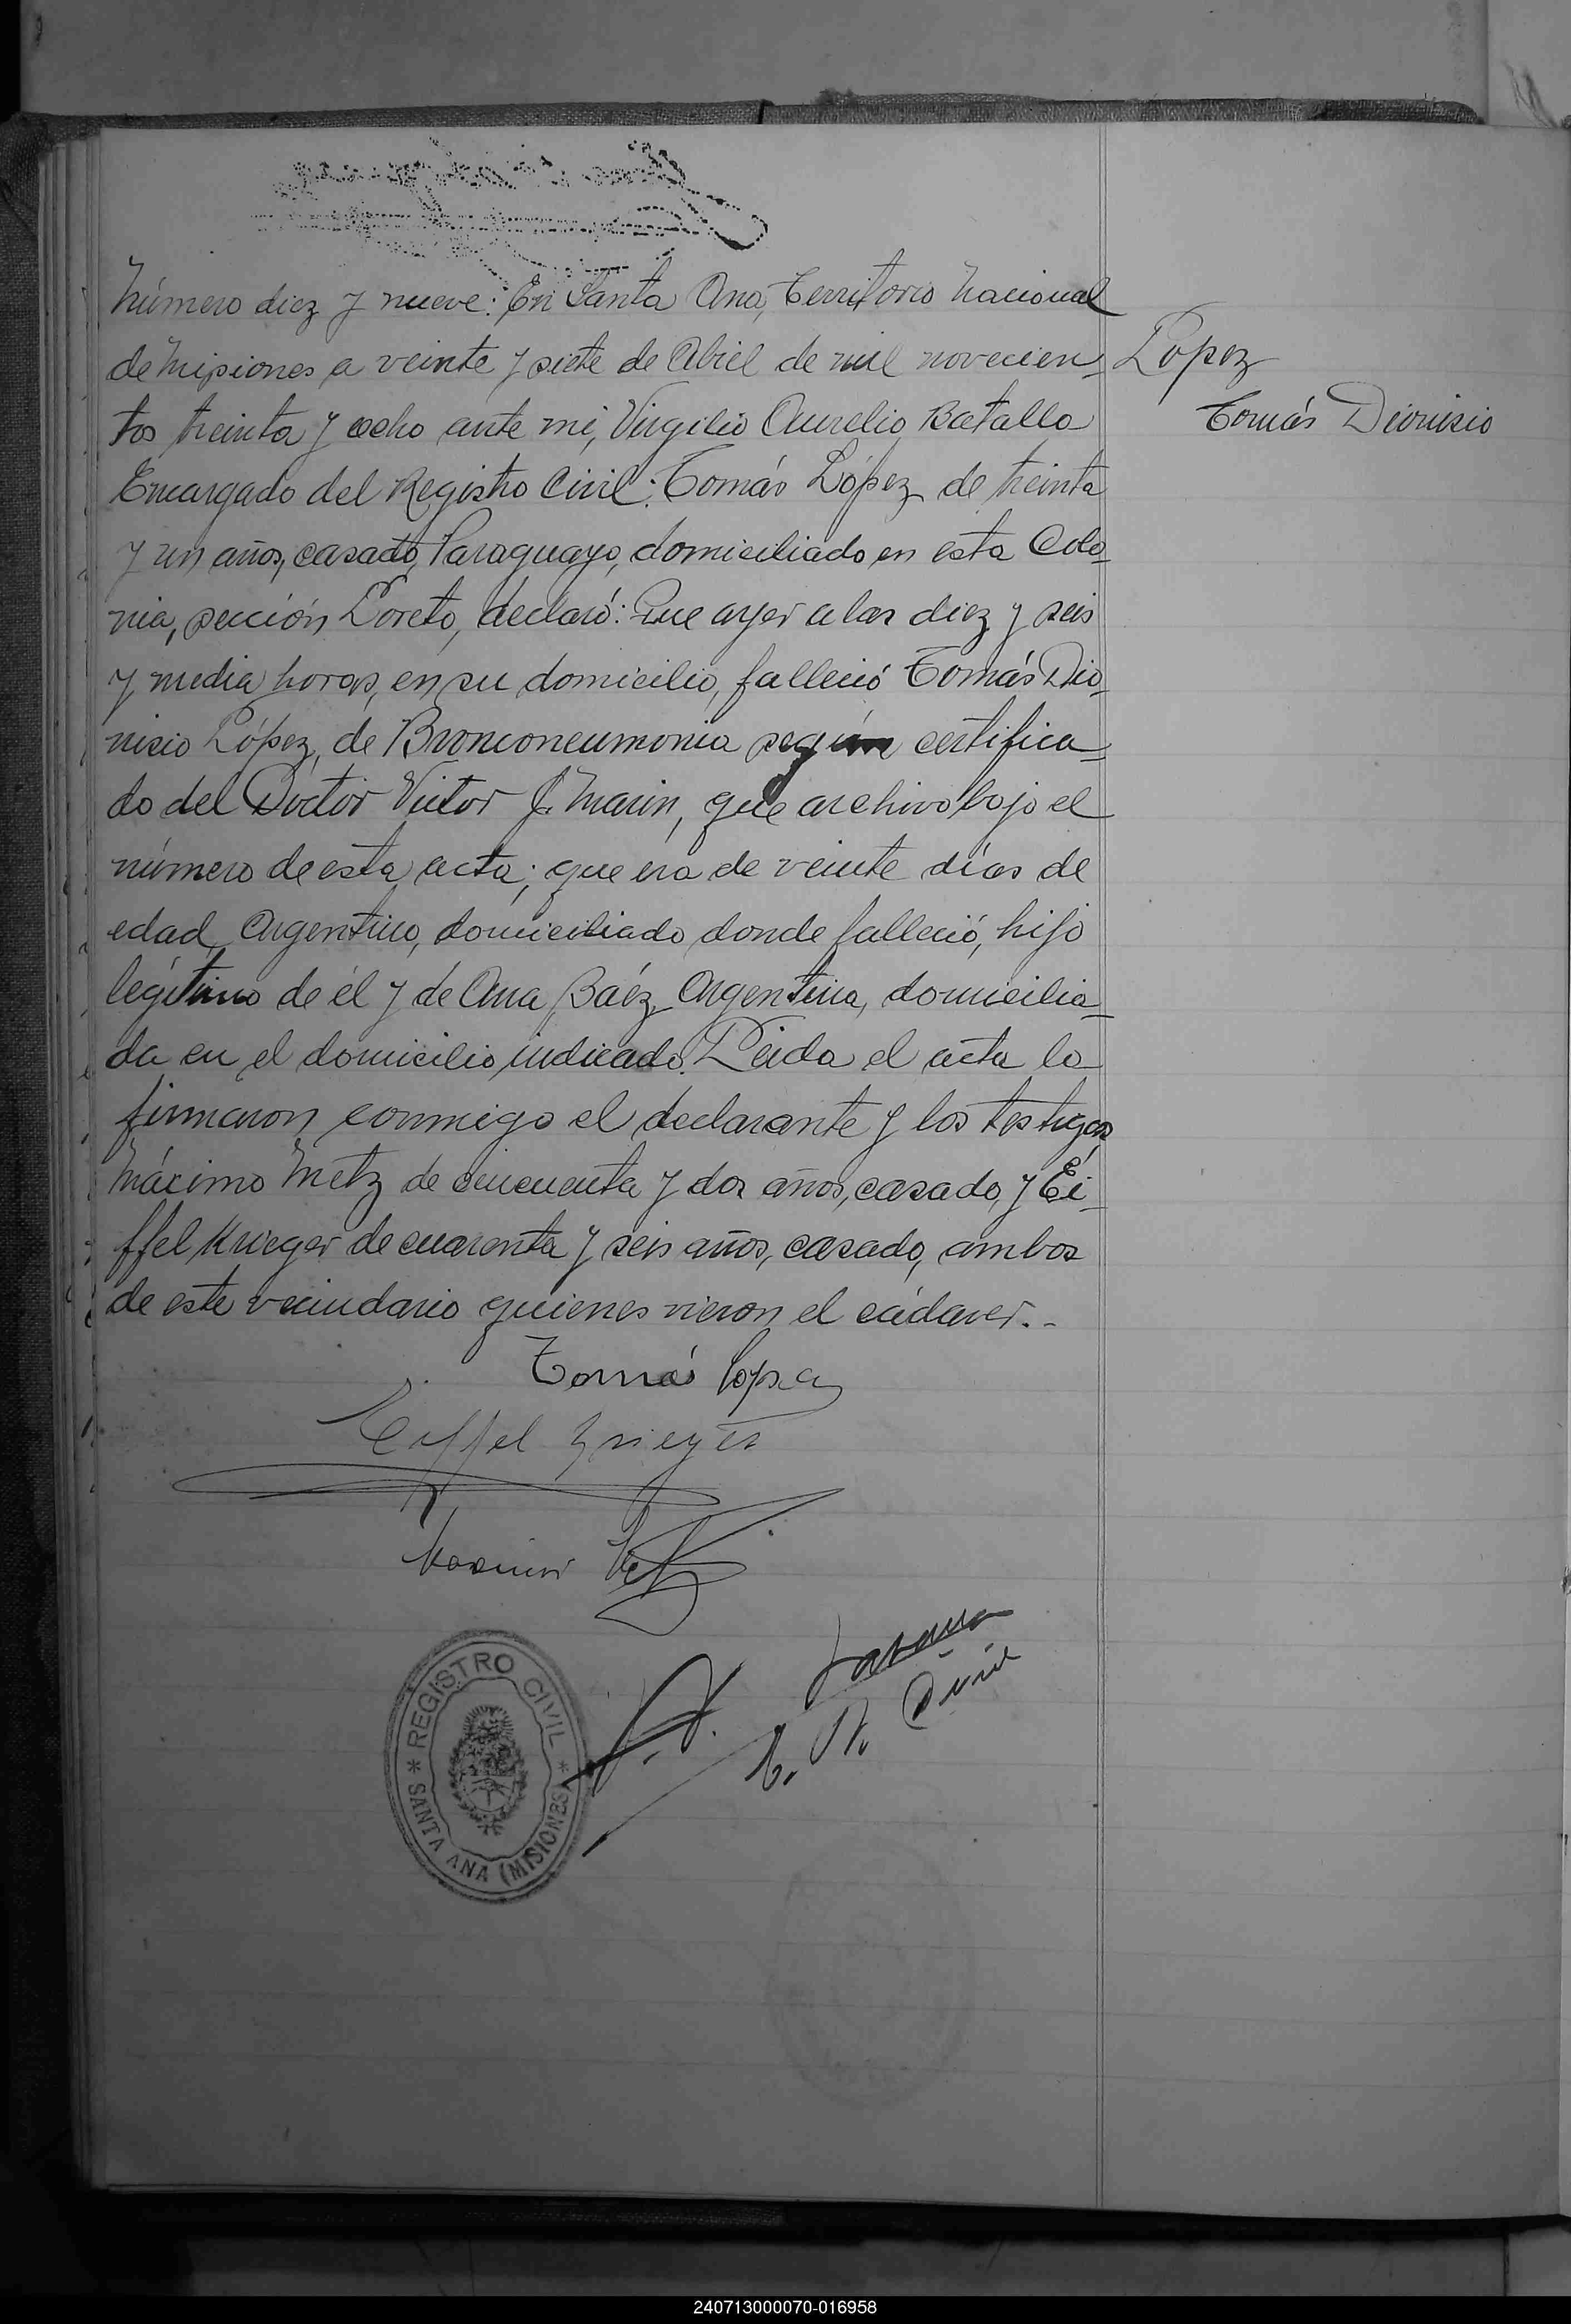 Número diez y nueve: En Santa Ana, Territorio Nacional
de Misiones a veinte y siete de Abril de mil novecien-
tos treinta y ocho ante mi, Virgilio Aurelio Batalla
Encargado del Registro Civil: Tomás López de treinta
y un años, casado, Paraguayo, domiciliado en esta Colo-
nia, sección Loreto, declaró: Que ayer a las diez y seis
y media horas, en su domicilio, falleció Tomás Dio-
nisio López, de Bronconeumonia según certifica-
do del Doctor Victor J. Marin, que archivo bajo el
número de esta acta; que era de veinte días de
edad, Argentino, domiciliado donde falleció, hijo
legítimo de él y de Ana Báez, Argentina, domicilia-
da en el domicilio indicado. Leida el acta la
firmaron conmigo el declarante y los testigos
Máximo Metz de cincuenta y dos años, casado, y Ei-
ffel Krieger de cuarenta y seis años, casado, ambos
de este vecindario quienes vieron el cádaver.-
López
Tomás Dionisio
Tomás Lopez
Eiffel Krieger
Maximo Metz
E. R. Civil
REGISTRO CIVIL
* SANTA ANA (MISIONES) *
240713000070-016958